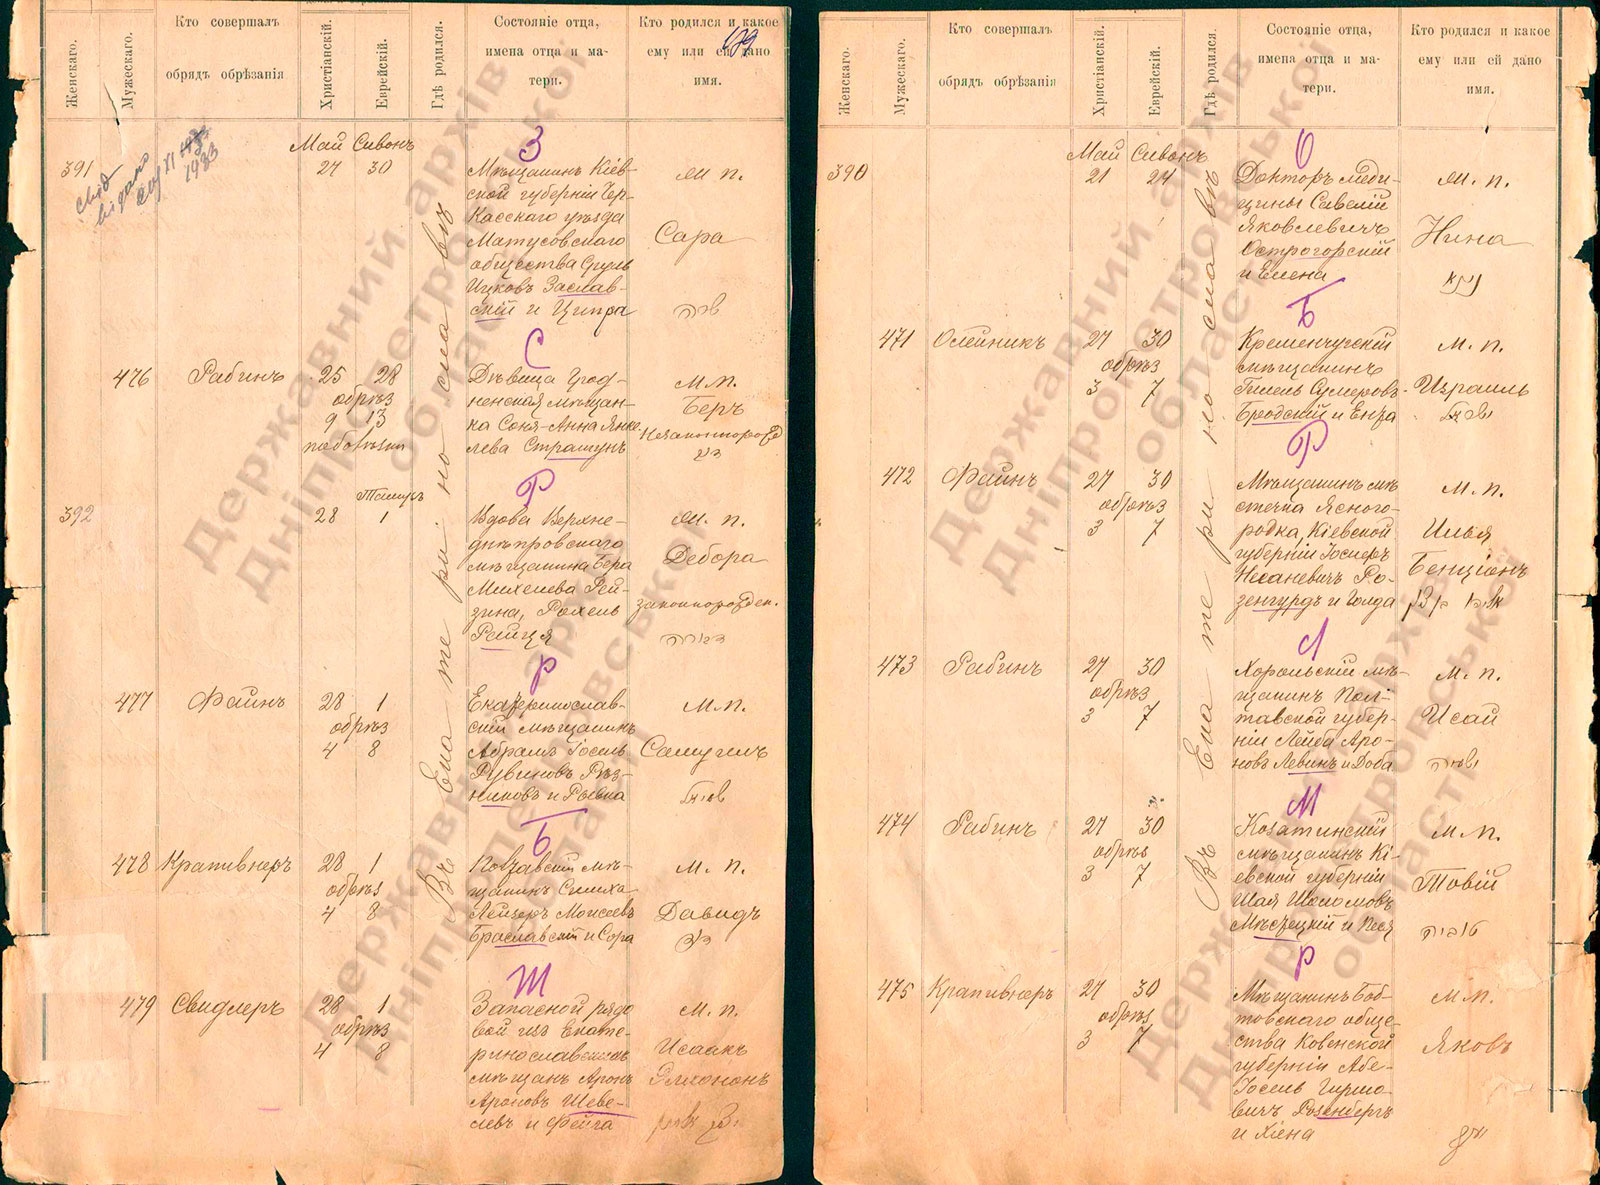 Женскаго.
Мужескаго.
Кто совершалъ
обрядъ обрѣзанія
Христіанскій.
Еврейскій.
Гдѣ родился.
Состояніе отца,
имена отца и ма-
тери.
Кто родился и какое
ему или ей дано
имя.
1933
Въ Екатеринославѣ
391
Май Сивонъ
27 30
З
Мѣщанинъ Кіев-
ской губерніи Чер-
касскаго уѣзда
Матусовскаго
общества Сруль
Ицковъ Заслав-
скій и Ципра
М. п.
Сара
שרה
476
Рабинъ
25 28
обрѣз
9 13
С
Дѣвица Грод-
ненская мѣщан-
ка Соня-Анна Янке
лева Страшунъ
М. п.
Беръ
Незаконнорожд
392
Тамузъ
28 1
Р
Вдова Верхне-
днѣпровскаго
мѣщанина Бера
Михелева Рей-
зина, Рохель
Райця
М. п.
Дебора
законнорожден.
דבורה
477
Файнъ
28 1
обрѣз
4 8
Р
Екатеринослав-
скій мѣщанинъ
Абрамъ Іосель
Рувиновъ Рѣз-
никовъ и Рывка
М. п.
Самуилъ
478
Крапивнеръ
28 1
обрѣз
4 8
Б
Полтавскій мѣ-
щанинъ Симха
Лейзеръ Моисеевъ
Браславскій и Сора
М. п.
Давидъ
479
Свидлеръ
28 1
обрѣз
4 8
Ш
Запасной рядо
вой изъ Екате-
ринославскихъ
мѣщанъ Аронъ
Ароновъ Шеве-
левъ и Фейга
М. п.
Исаакъ
Женскаго.
Мужескаго.
Кто совершалъ
обрядъ обрѣзанія
Христіанскій.
Еврейскій.
Гдѣ родился.
Состояніе отца,
имена отца и ма-
тери.
Кто родился и какое
ему или ей дано
имя.
Въ Екатеринославѣ
390
Май Сивонъ
21 24
О
Докторъ меди-
цины Савелій
Яковлевичъ
Острогорскій
и Елена
М. п.
Нина
471
Олейникъ
27 30
обрѣз
3 7
Б
Кременчугскій
мѣщанинъ
Бродскій и Енза
М. п.
Израиль
472
Файнъ
27 30
обрѣз
3 7
Р
Мѣщанинъ мѣ
стечка Ясного-
родка, Кіевской
губерніи Іосифъ
Нехановичъ Ро-
зенгурдъ и Голда
М. п.
Илья
Бенціонъ
473
Рабинъ
27 30
обрѣз
3 7
Л
Хорольскій мѣ-
щанинъ Пол-
тавской губер-
ніи Лейба Аро-
новъ Левинъ и Доба
М. п.
Исай
474
Рабинъ
27 30
обрѣз
3 7
М
Козатинскій
мѣщанинъ Кі-
евской губерніи
Шая Шоломовъ
М. п.
Товій
טוביה
475
Крапивнеръ
27 30
обрѣз
3 7
Р
Мѣщанинъ Боб-
товскаго обще-
ства Ковенской
губерніи Абе-
Іосель Гиршо-
вичъ Розенбергъ
и Хіена
М. п.
Яковъ
Державний архів
Дніпропетровської
області